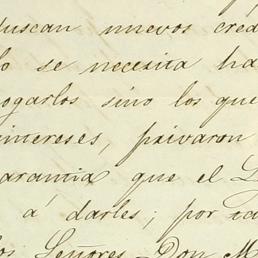 buscan nuevos cred
lo se necesita ha
ogarlos sino los que
intereses, privaron
arantia que el
á darles; por
los Señores Don M